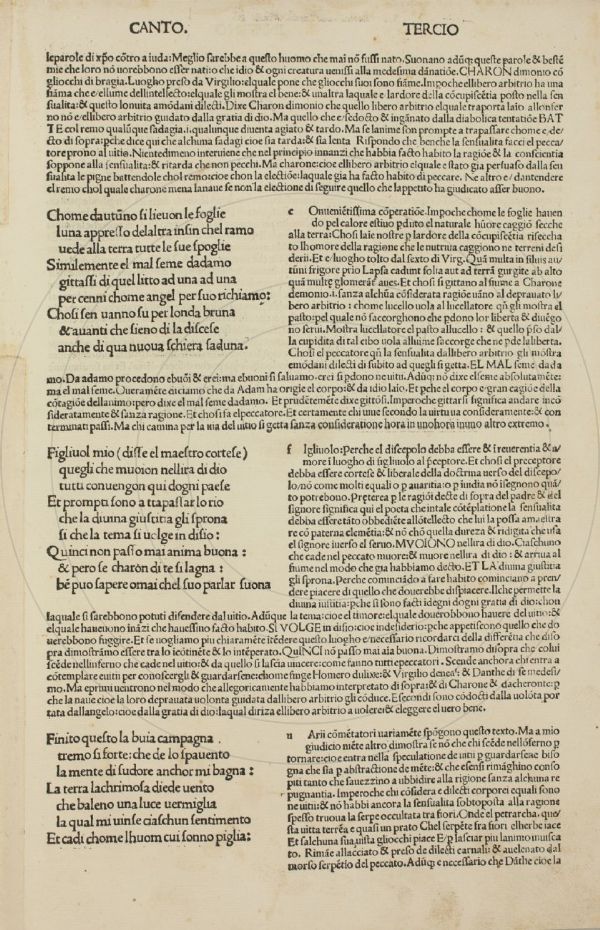 CANTO. TERCIO
leparole di xp̄o cōtro a iuda: Meglio sarebbe a questo huomo che mai nō fussi nato. Suonano adūq; queste parole & bestē
mie che loro nō uorebbono esser nati: o che idio & ogni creatura uenissi alla medesima dānatiōe. CHARON dimonio cō
gliocchi di bragia. Luogho preso da Virgilio: elquale pone che gliocchi suoi sono fiāme. Impoche ellibero arbitrio ha una
fiāma che e ellume dellintellecto: elquale gli mostra el bene: & unaltra laquale e lardore della cōcupiscētia posto nella sen
sualita: & questo lonuita amōdani dilecti. Dixe Charon dimonio che quello libero arbitrio elquale traporta laio allonfer
no nō e ellibero arbitrio guidato dalla gratia di dio. Ma quello che e sedocto & ingānato dalla diabolica tentatiōe BAT
TE col remo qualūque sadagia .i. qualunque diuenta agiato & tardo. Ma se lanime son prompte a trapassare chome e de/
cto di sopra: pche dice qui che alchuna sadagi cioe sia tarda: & sia lenta Rispondo che benche la sensualita facci el pecca/
tore prono al uitio. Nientedimeno interuiene che nel principio innanzi che habbia facto habito la ragiōe & la conscientia
soppone alla sensualita: & ritarda che non pecchi. Ma charone: cioe ellibero arbitrio elquale e stato gia persuaso dalla sen
sualita le pigne battendole chol remo: cioe chon la electiōe: laquale gia ha facto habito di peccare. Ne altro e / dantendere
el remo chol quale charone mena lanaue se non la electione di seguire quello che lappetito ha giudicato asser buono.
Chome dautūno si lieuon le foglie
luna appresso delaltra insin chel ramo
uede alla terra tutte le sue spoglie
Similemente el mal seme dadamo
gittassi di quel litto ad una ad una
per cenni chome angel per suo richiamo:
Chosi sen uanno su per londa bruna
& auanti che sieno di la discese
anche di qua nuoua schiera saduna.
c Onuenietissima cōperatiōe. Impoche chome le foglie hauen
do pel calore estiuo pduto el naturale huore caggiō secche
alla terra: Chosi laie nostre p lardore della cōcupiscētia riseccha
to lhomore della ragione che le nutriua caggiono ne terreni desi
derii. Et e luogho tolto dal sexto di Virg. Quā multa in siluis au/
tūni frigore prio Lapsa cadunt folia aut ad terrā gurgite ab alto
quā multę glomerāt aues. Et chosi si gittano al fiume a Charone
demonio .i. sanza alchūa cōsiderata ragiōe uāno al deprauato li/
bero arbitrio: chome lucello uola al lucellatore qn̄ gli mostra el
pasto: pel quale nō saccorghono che pdono lor liberta & diuēgo
no serui. Mostra lucellatore el pasto allucello: & quello pso dal/
la cupidita di tal cibo uola alluiine saccorge che ne pde la liberta.
Chosi el peccatore qn̄ la sensualita dallibero arbitrio gli mostra
emōdani dilecti di subito ad quegli si getta. EL MAL seme dada
mo. Da adamo procedono ebuōi & erei: ma ebuoni si saluamo. e rei si perdono ne uitii. Adūq; nō dixe el seme absolutamēte:
ma el mal seme. Oueramēte diciamo che da Adam ha origie el corpo: & da idio laio. Et pche el corpo e gran cagiōe della
cōtagiōe dellanimo: pero dixe el mal seme dadamo. Et prudētemēte dixe gittōsi. Imperoche gittarsi significa andare incō
sideratamente & sanza ragione. Et chosi fa elpeccatore. Et certamente chi uiue secondo la uirtu ua consideramente: & con
terminati passi. Ma chi camina per la uia del uitio si getta sanza consideratione hora in uno hora inuno altro extremo.
Figliuol mio (disse el maestro cortese)
quegli che muoion nellira di dio
tutti conuengon qui dogni paese
Et prompti sono a trapassar lo rio
che la diuina giustitia gli sprona
si che la tema si uolge in disio:
Quinci non passo mai anima buona:
& pero se charōn di te si lagna:
bē puo sapere omai chel suo parlar suona
f Igliuolo: Perche el discepolo debba essere & i reuerentia & a/
more i luogo di figliuolo al p̄ceptore. Et chosi el preceptore
debba essere cortese & liberale della doctrina uerso del discepo/
lo / nō come molti equali o p auaritia: o p iudia nō īsegnono quā/
to potrebono. Pręterea p le ragiōi decte di sopra del padre & del
signore significa qui el poeta che intale cōtēplatione la sensualita
debba essere tāto obbediēte allōtellecto che lui la possa amaestra
re cō paterna clemētia: & nō chō quella dureza & ridigita che usa
el signore iuerso el seruo. MVOIONO nellira di dio. Ciaschuno
che cade nel peccato muore: & muore nellira di dio: & arriua al
fiume nel modo che gia habbiamo decto. ET LA diuina giustitia
gli sprona. Perche cominciādo a fare habito cominciano a pren/
dere piacere di quello che douerebbe dispiacere. Ilche permette la
diuina iustitia: pche si sono facti idegni dogni gratia di dio: chon
laquale si sarebbono potuti difendere dal uitio. Adūque la tema: cioe el timore: elquale douerobbono hauere del uitio: &
elquale haueuono inazi che hauessino facto habito. SI VOLGE in disio: cioe indesiderio: pche appetiscono quello che do
uerebbono fuggire. Et se uogliamo piu chiaramēte itēdere questo luogho e / necessario ricordarci della differētia che diso
pra dimostrāmo essere tra lo icōtinēte & lo intēperato. QuINCI nō passo mai aia buona. Dimostramo disopra che colui
scēde nellinferno che cade nel uitio: & da quello si lascia uincere: come fanno tutte peccatori. Scende anchora chi entra a
cōtemplare euitii per conoscergli & guardarsene: chome finge Homero dulixe: & Virgilio denea: & Danthe di se medesi/
mo. Ma eprimi uentrono nel modo che allegoricamente habbiamo interpretato di sopra: & di Charone & dacheronte: p
che la naue cioe la loro deprauata uolonta guidata dallibero arbitrio gli cōduce. Esecondi sono cōdocti dalla uolōta por
tata dallangelo: cioe dalla gratia di dio: laqual diriza ellibero arbitrio a uolere: & eleggere el uero bene.
Finito questo la buia campagna
tremo si forte: che de lo spauento
la mente di sudore anchor mi bagna:
La terra lachrimosa diede uento
che baleno una luce uermiglia
la qual mi uinse ciaschun sentimento
Et cadi chome lhuom cui sonno piglia:
u Arii cōmētatori uariamēte spōgono questo texto. Ma a mio
giudicio niēte altro dimostra se nō che chi scēde nellōferno p
tornare: cioe entra nella speculatione de uitii p guardarsene biso
gna che sia p abstractione de mēte: & che esensi rimāghino conso
piti tanto che sauezzino a ubbidire alla rigione sanza alchuna re
pugnantia. Imperoche chi cōsidera e dilecti corporei equali sono
ne uitii: & nō habbi ancora la sensualita sobtoposta alla ragione
spesso truoua la serpe occultata tra fiori. Onde el petrarcha. que/
sta uitta terrēa e quasi un prato Chel serpēte fra fiori ellherbe iace
Et salchuna sua uista gliocchi piace E / p lasciar piu lanimo inuisca
to. Rimāe allacciato & preso de dilecti carnali: & auelenato dal
morso serpētio del peccato. Adūq; e necessario che Dāthe cioe la